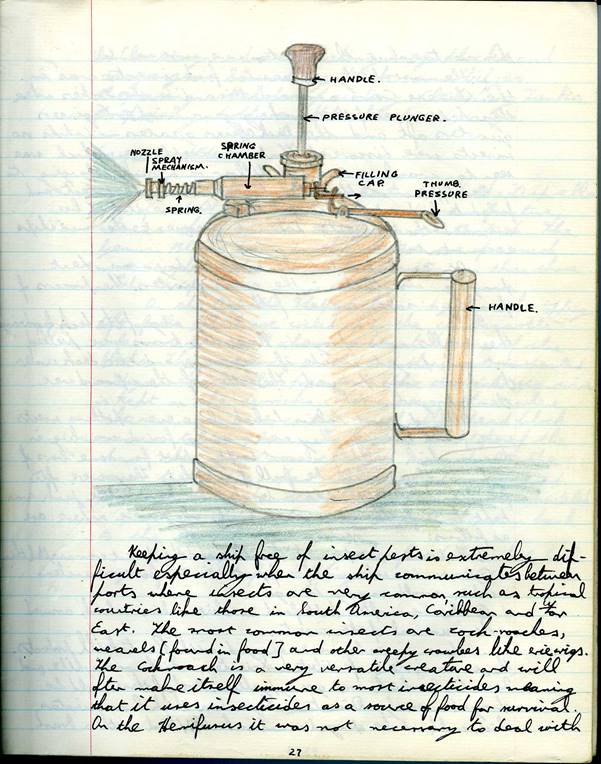 HANDLE.
PRESSURE PLUNGER.
NOZZLE
SPRAY
MECHANISM.
SPRING
CHAMBER
FILLING
CAP.
THUMB.
PRESSURE
SPRING.
HANDLE.
Keeping a ship free of insect pests is extremely dif-
ficult especially when the ship communicates between
ports where insects are very common such as tropical
countries like those in South America, Caribbean and Far
East. The most common insects are cock-roaches,
weavels [found in food] and other creepy crawlies like eriewigs.
The Cockroach is a very versatile creature and will
often make itself immune to most insecticides meaning
that it uses insecticides as a source of food for survival.
On the it was not necessary to deal with
27